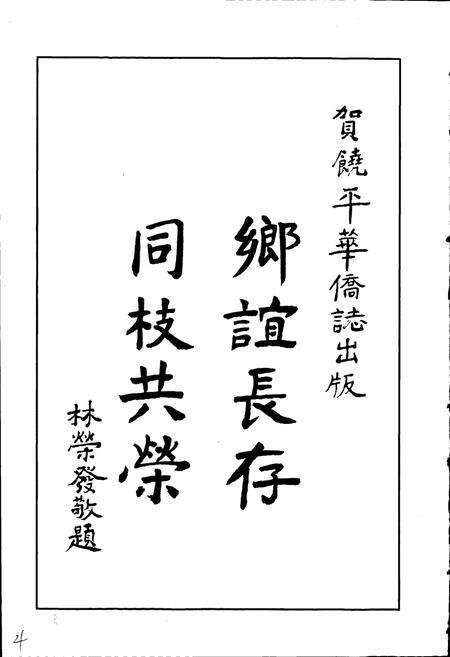 賀饒平華僑誌出版
鄉誼長存
同枝共榮
林榮發敬題
4